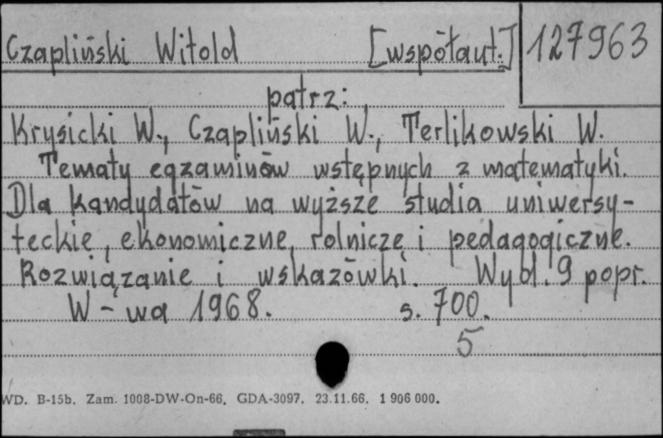 Czapliński Witold [współaut.] 127963
patrz:
Krysicki W., Czapliński W., Terlikowski W.
Tematy egzaminów wstępnych z matematyki.
Dla kandydatów na wyższe studia uniwersy-
teckie, ekonomiczne, rolnicze i pedagogiczne.
Rozwiązanie i wskazówki. Wyd. 9 popr.
W-wa 1968. s. 700.
5
WD. B-15b. Zam. 1008-DW-On-66. GDA-3097. 23.11.66. 1 906 000.